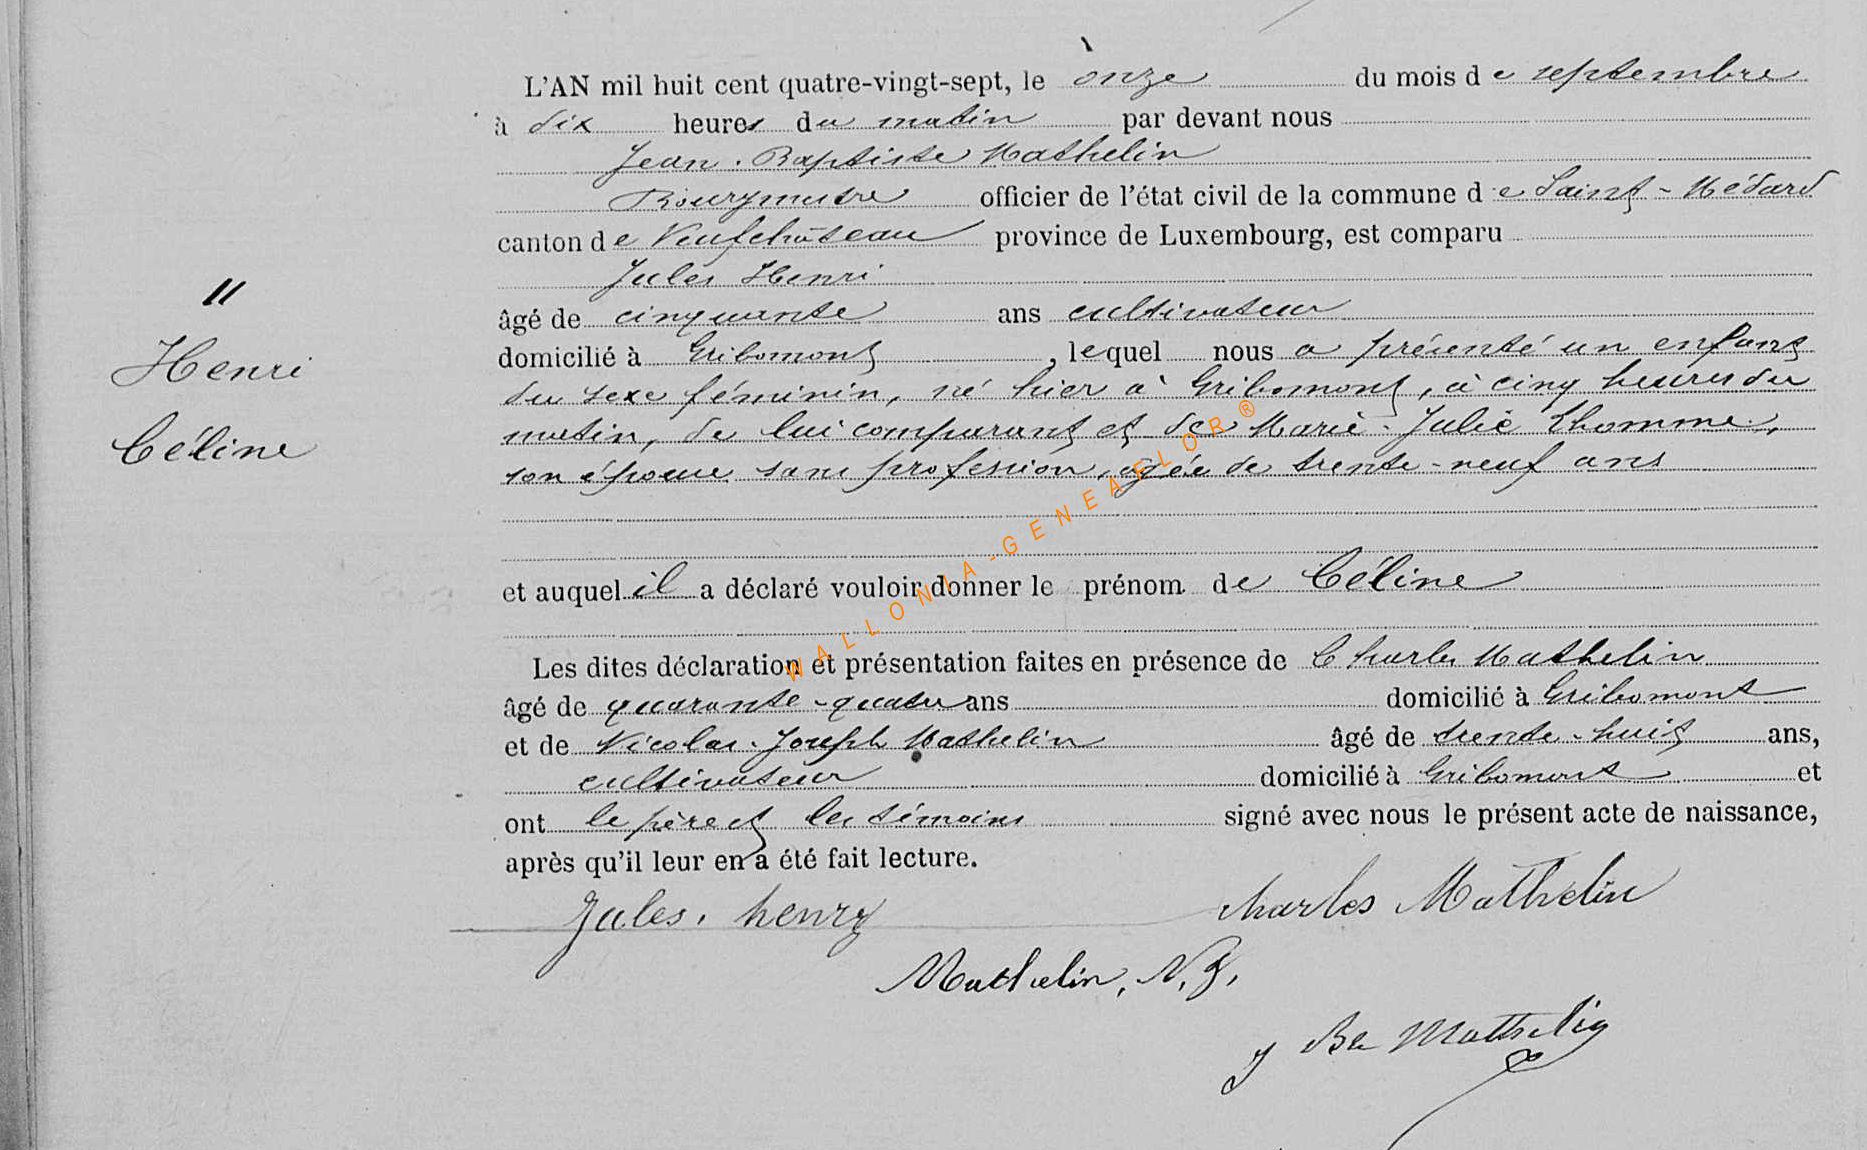 L'AN mil huit cent quatre-vingt-sept, le onze du mois de septembre
à dix heures du matin par devant nous
Jean-Baptiste Mathelin
Bourgmestre officier de l'état civil de la commune de Saint-Médard
canton de Neufchâteau province de Luxembourg, est comparu
Jules Henri
11
âgé de cinquante ans cultivateur
Henri
domicilié à Gribomont, lequel nous a présenté un enfant
du sexe féminin, né hier à Gribomont, à cinq heures du
Céline
matin, de lui comparant et de Marie-Julie Thomme,
son épouse sans profession, âgée de trente-neuf ans
et auquel il a déclaré vouloir donner le prénom de Céline
Les dites déclaration et présentation faites en présence de Charles Mathelin
âgé de quarante-quatre ans domicilié à Gribomont
et de Nicolas-Joseph Mathelin âgé de trente-huit ans,
cultivateur domicilié à Gribomont et
ont le père et les témoins signé avec nous le présent acte de naissance,
après qu'il leur en a été fait lecture.
Jules. henry Charles Mathelin
Mathelin, N. J.
J Bte Mathelin
WALLONIA-GENEAFLOR®